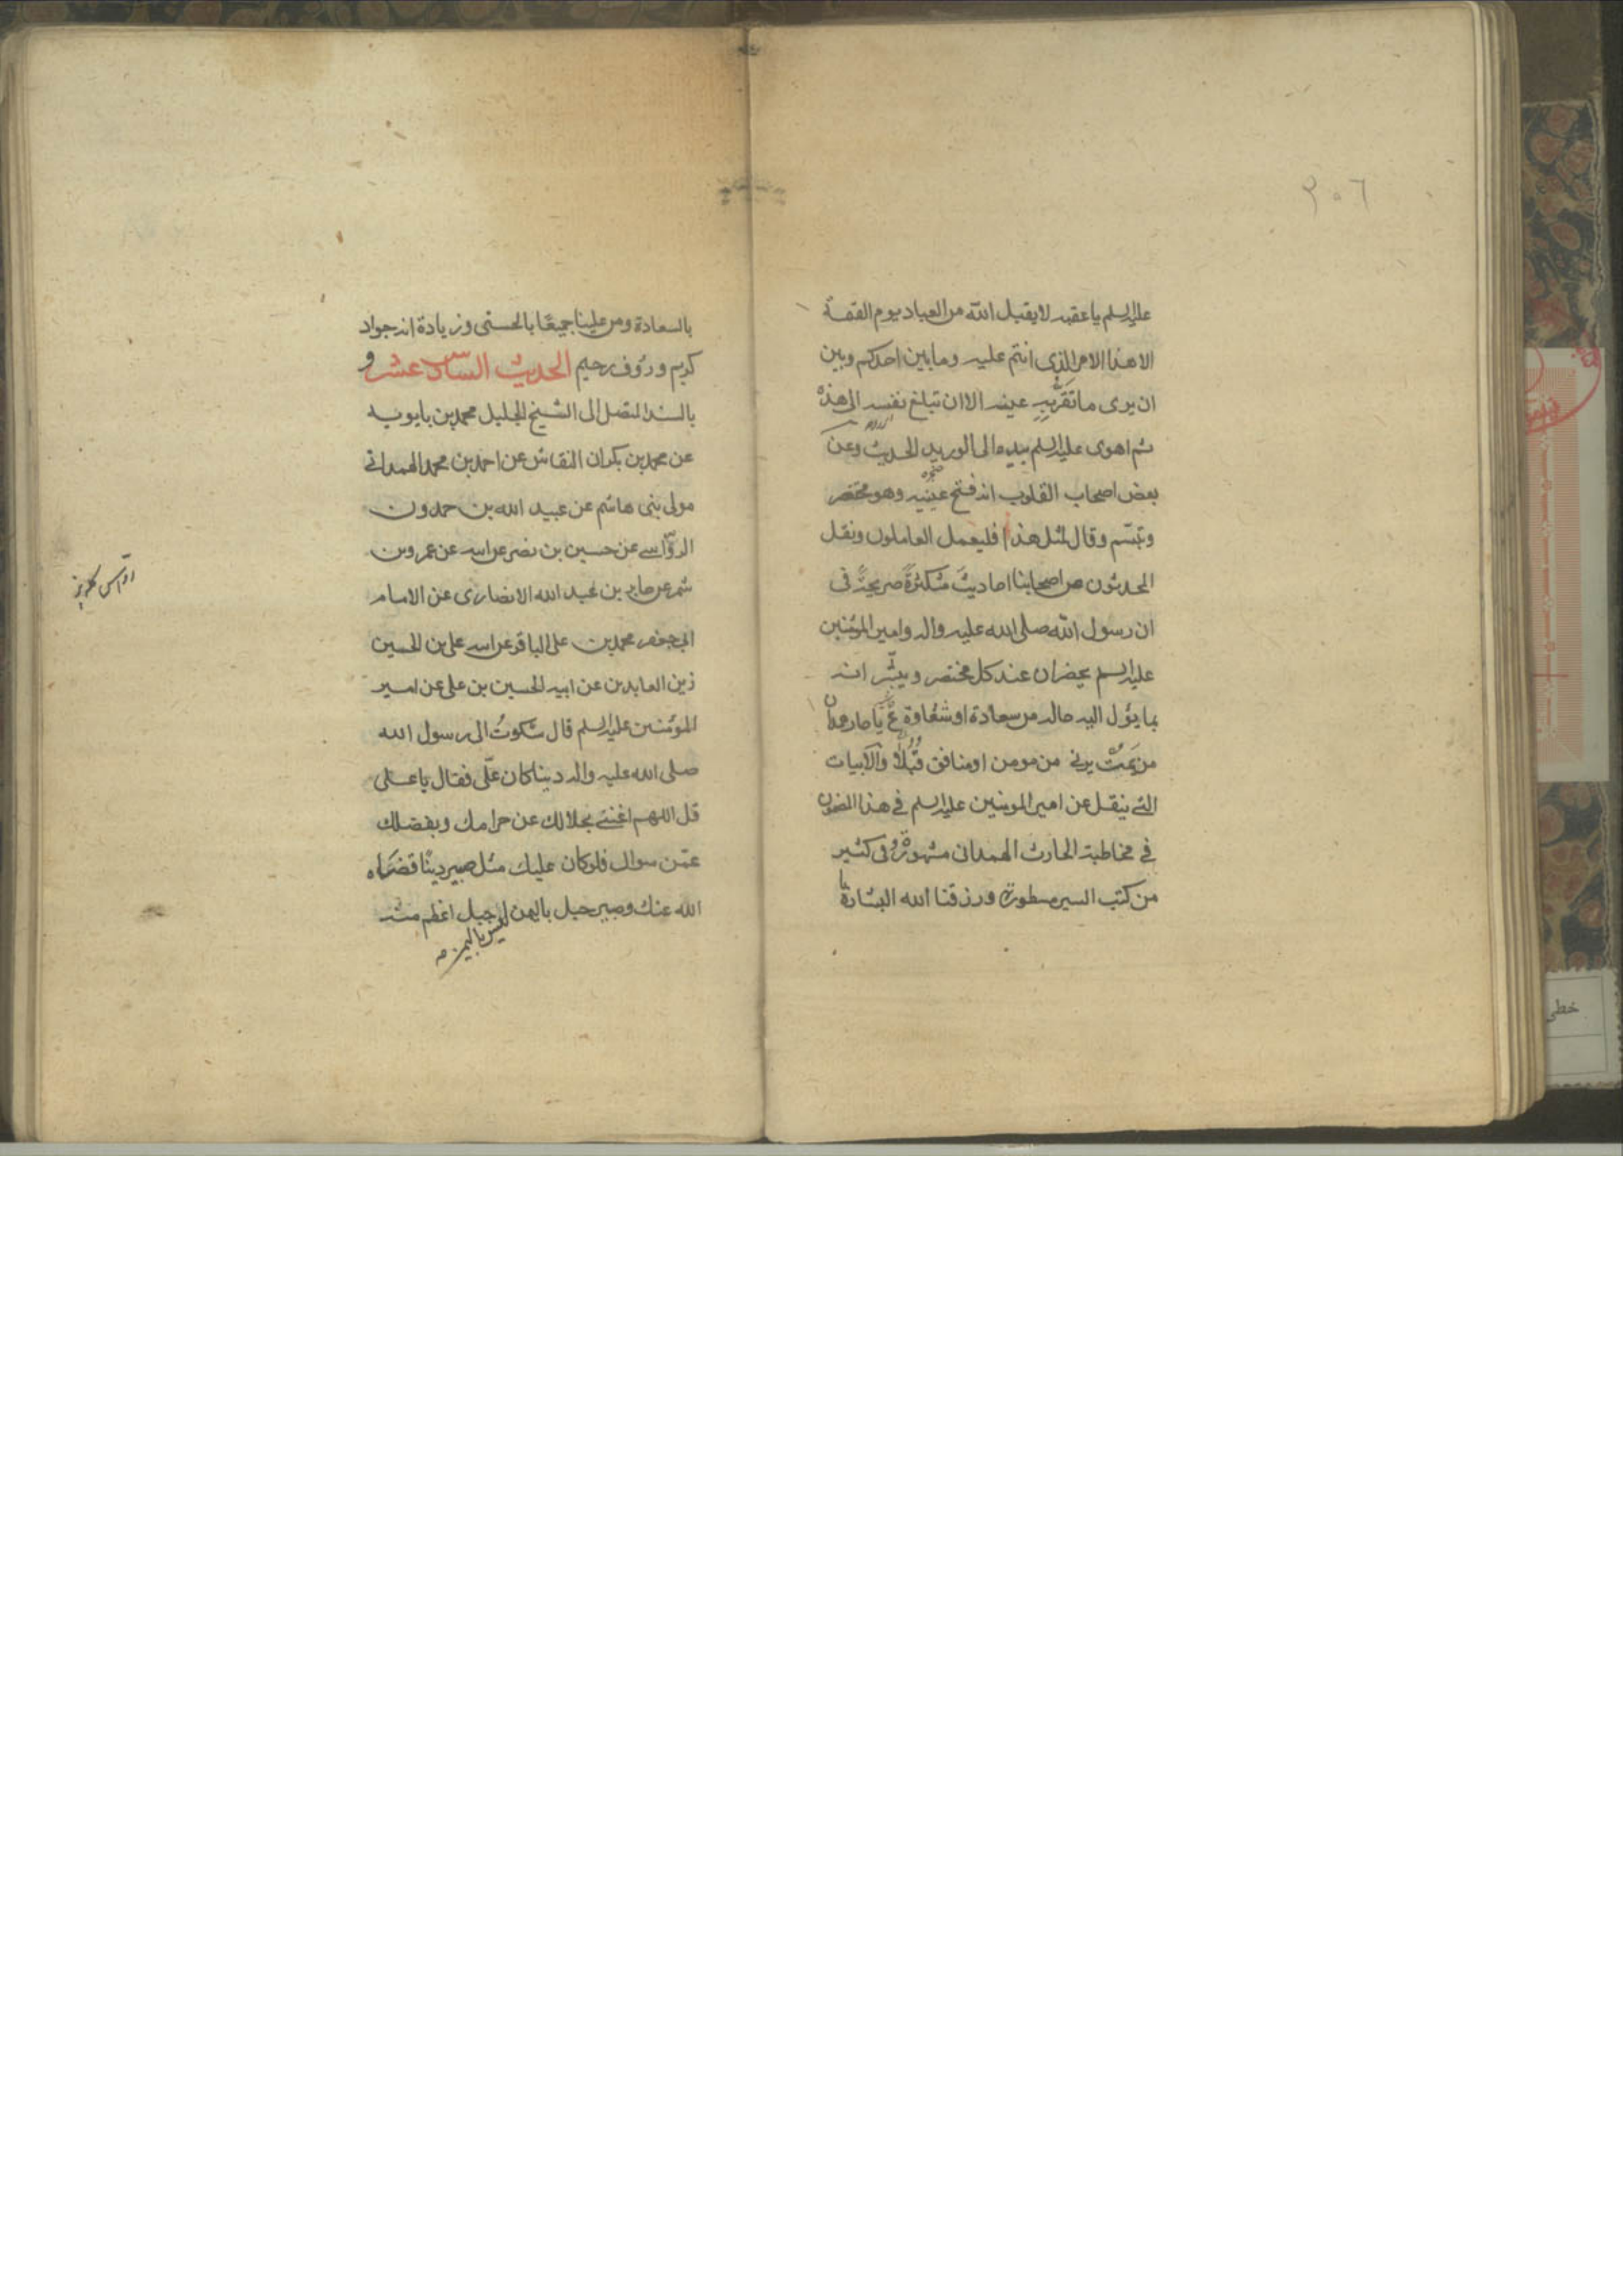 ٣٠٦
عليه السلم يا عقبه لا يقبل الله من العباد يوم القيمة
الا هذا الامر الذى انتم عليه وما بين احدكم وبين
ان يرى ما تقرّبه عينه الا ان تبلغ نفسه الى هذه
ثم اهوى عليه السلم بيده الى الوريد الحديث وعن
بعض اصحاب القلوب انه فتح عينيه وهو محتضر
وتبسّم وقال لمثل هذا فليعمل العاملون ونقل
المحدثون من اصحابنا احاديث متكثرة صريحة فى
ان رسول الله صلى الله عليه واله وامير المؤمنين
عليه السلم يحضران عند كل محتضر ويبشّرانه
بما يؤل اليه حاله من سعادة او شقاوة ع يا حار همدان
من يَمُتْ يرنى من مومن او منافق قُبُلًا والابيات
التى ينقل عن امير المومنين عليه السلم فى هذا المضمون
فى مخاطبة الحارث الهمدانى مشهورة وفى كثير
من كتب السير مسطورة ورزقنا الله البشارة
بالسعادة ومن علينا جميعًا بالحسنى وزيادة انه جواد
كريم ورؤف رحيم الحديث السادس عشر و
بالسند المتصل الى الشيخ الجليل محمد بن بابويه
عن محمد بن بكران النقاش عن احمد بن محمد الهمدانى
مولى بنى هاشم عن عبيد الله بن حمدون
الروّاسى عن حسين بن نصر عن ابيه عن عمرو بن
شمر عن جابر بن عبد الله الانصارى عن الامام
ابى جعفر محمد بن على الباقر عن ابيه على بن الحسين
زين العابدين عن ابيه الحسين بن على عن امير
المؤمنين عليه السلم قال شكوتُ الى رسول الله
صلى الله عليه واله دينا كان علّى فقال يا على
قل اللهم اغننى بحلالك عن حرامك وبفضلك
عمّن سواك فلو كان عليك مثل صبير دينًا قضاه
الله عنك وصبير جبل باليمن ليس باليمن جبل اعظم منه
خطى